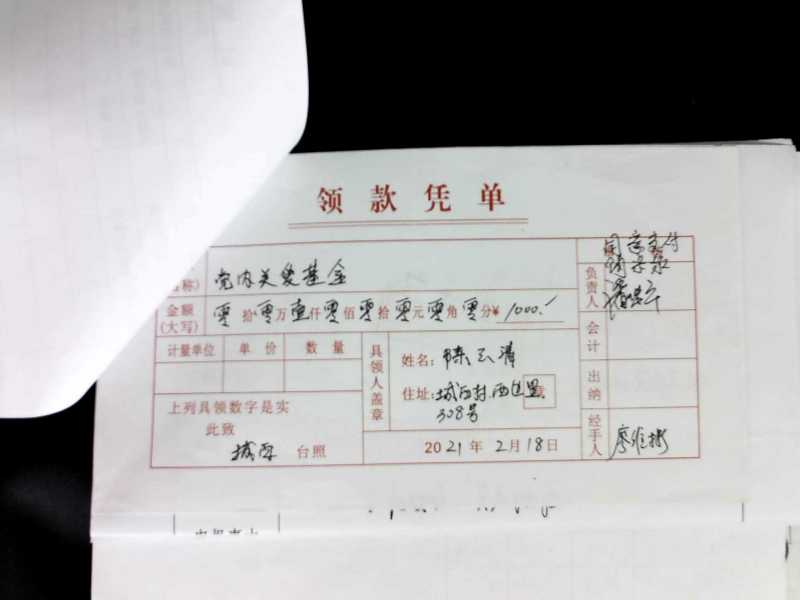 领款凭单
称) 党内关爱基金
金额(大写) 零拾零万壹仟零佰零拾零元零角零分¥ 1000.-
计量单位 单价 数量
具领人盖章
姓名: 陈云清
住址: 城西村西边里
308号
上列具领数字是实
此致
城西 台照
2021年2月18日
同意支付
负责人
会计
出纳
经手人